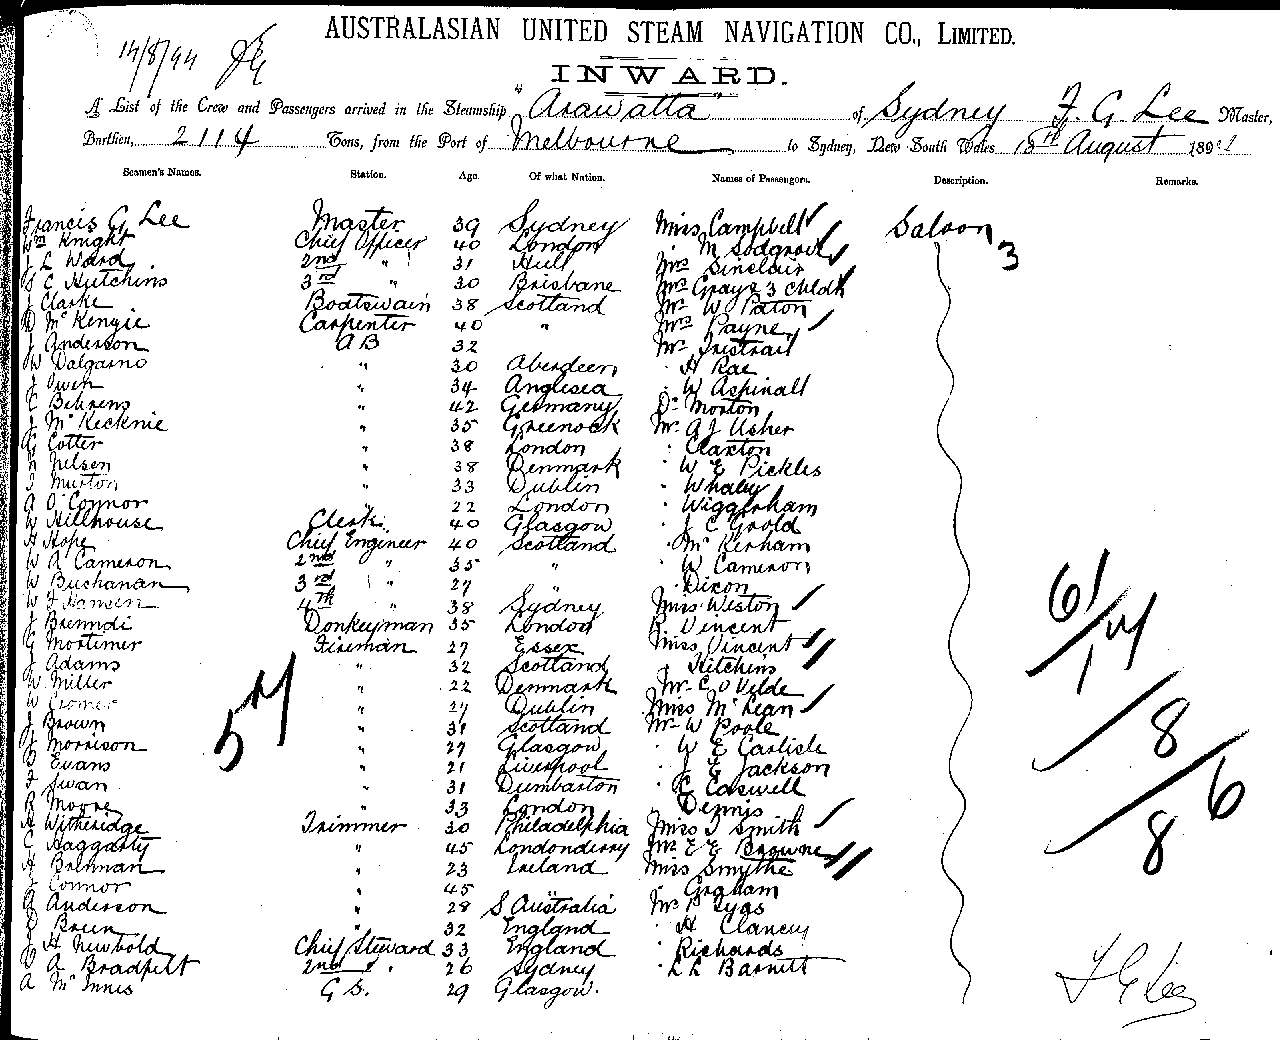 14/8/94
AUSTRALASIAN UNITED STEAM NAVIGATION CO., LIMITED.
INWARD.
A List of the Crew and Passengers arrived in the Steamship "Arawatta" of Sydney F. G. Lee Master,
Burthen, 2114 Tons, from the Port of Melbourne to Sydney, New South Wales August 189
Seamen's Names. Station. Age. Of what Nation. Names of Passengers. Description. Remarks.
Francis G Lee Master 39 Sydney Miss Campbell Saloon 3
Wm Knight Chief Officer 40 London " M
J L Ward 2nd " 31 Hull Mrs Sinclair
C Hutchins 3rd " 30 Brisbane Mrs Gray & 3 Childn
J Clarke Boatswain 38 Scotland Mr W Paton
D McKenzie Carpenter 40 " Mrs Payne
J Anderson AB 32 Mr
W Dalgarno " 30 Aberdeen " A Rae
J Owen " 34 Anglesea " W Aspinall
C Behrens " 42 Germany Dr Morton
J McKecknie " 35 Greenock Mr A J Usher
G Cotter " 38 London " Claxton
Nelson " 38 Denmark " W E Pickles
Murton " 33 Dublin " Whaley
A O'Connor " 22 London "
W Hillhouse Clerk 40 Glasgow " J C Goold
A Hope Chief Engineer 40 Scotland "
W A Cameron 2nd " 35 " " W Cameron
W Buchanan 3rd " 27 " " Dixon
W J Hansen 4th " 38 Sydney Miss Weston
J Donkeyman 35 London R Vincent
G Mortimer Fireman 27 Essex Miss Vincent
J Adams " 32 Scotland " Hitchins
W Miller " 22 Denmark Mr C O Velde
W Cromer " 27 Dublin Miss McLean
J Brown " 31 Scotland Mr W Poole
J Morrison " 27 Glasgow " W E Carlisle
Evans " 21 Liverpool " J E Jackson
J Swan " 31 Dumbarton " Caswell
R Moore " 33 London " Dennis
A Witheridge Trimmer 30 Philadelphia Miss J Smith
C Haggarty " 45 Londonderry Mr E E Browne
A Brennan " 23 Ireland Miss Smythe
J Connor " 45 " " Graham
A Anderson " 28 S Australia Mr P
Breen " 32 England " H Clancy
J H Newbold Chief Steward 33 England " Richards
A Bradpitt 2nd " 26 Sydney " L L Barnett
A McInnis G S. 29 Glasgow.
57
61/17
1
8/6
8
F G Lee